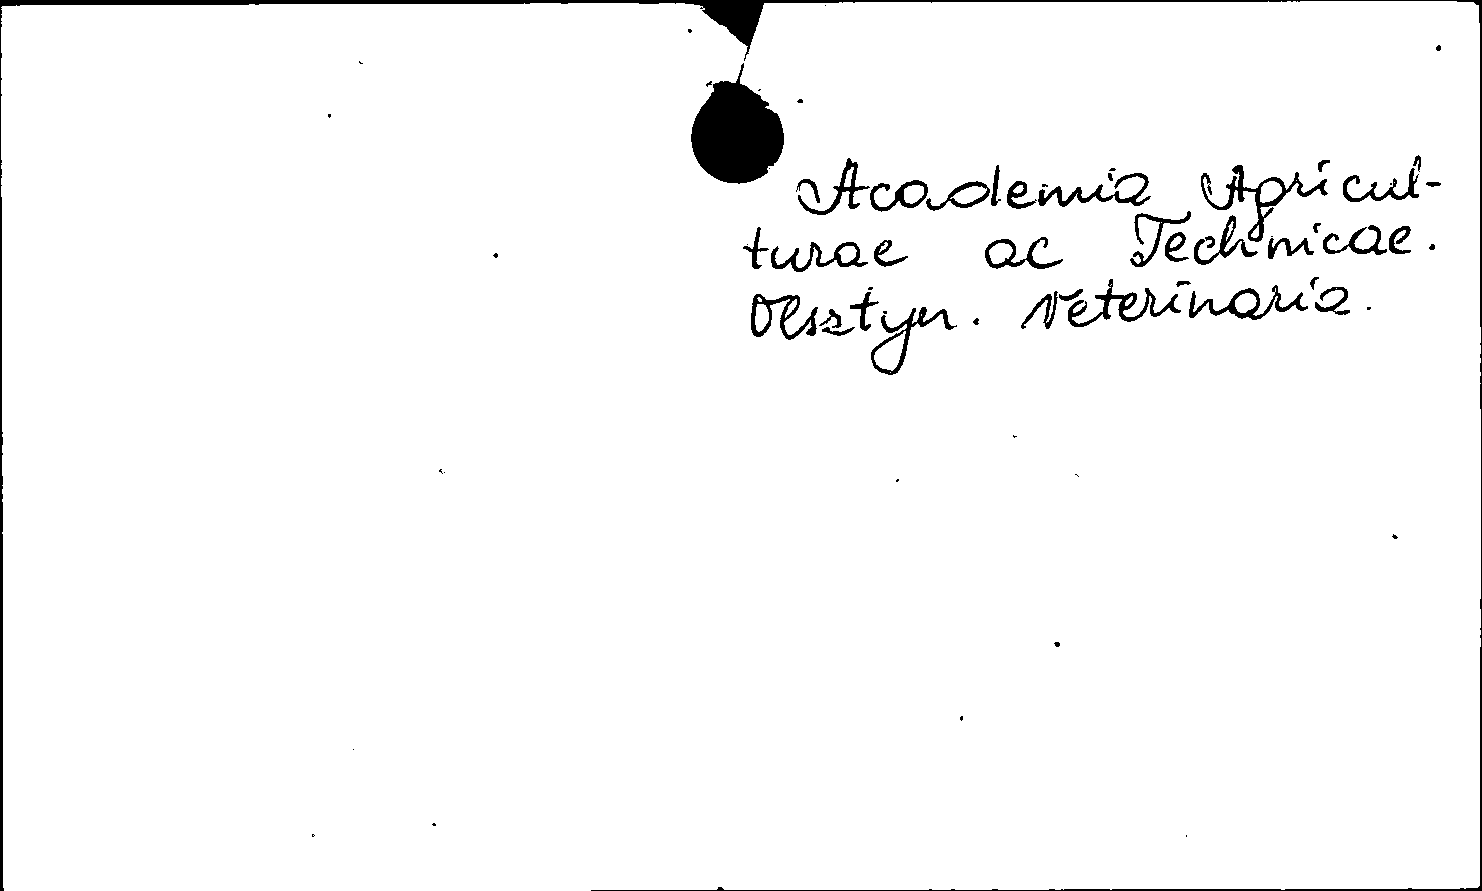 Academia Agricul-
turae ac Technicae.
Olsztyn. Veterinaria.